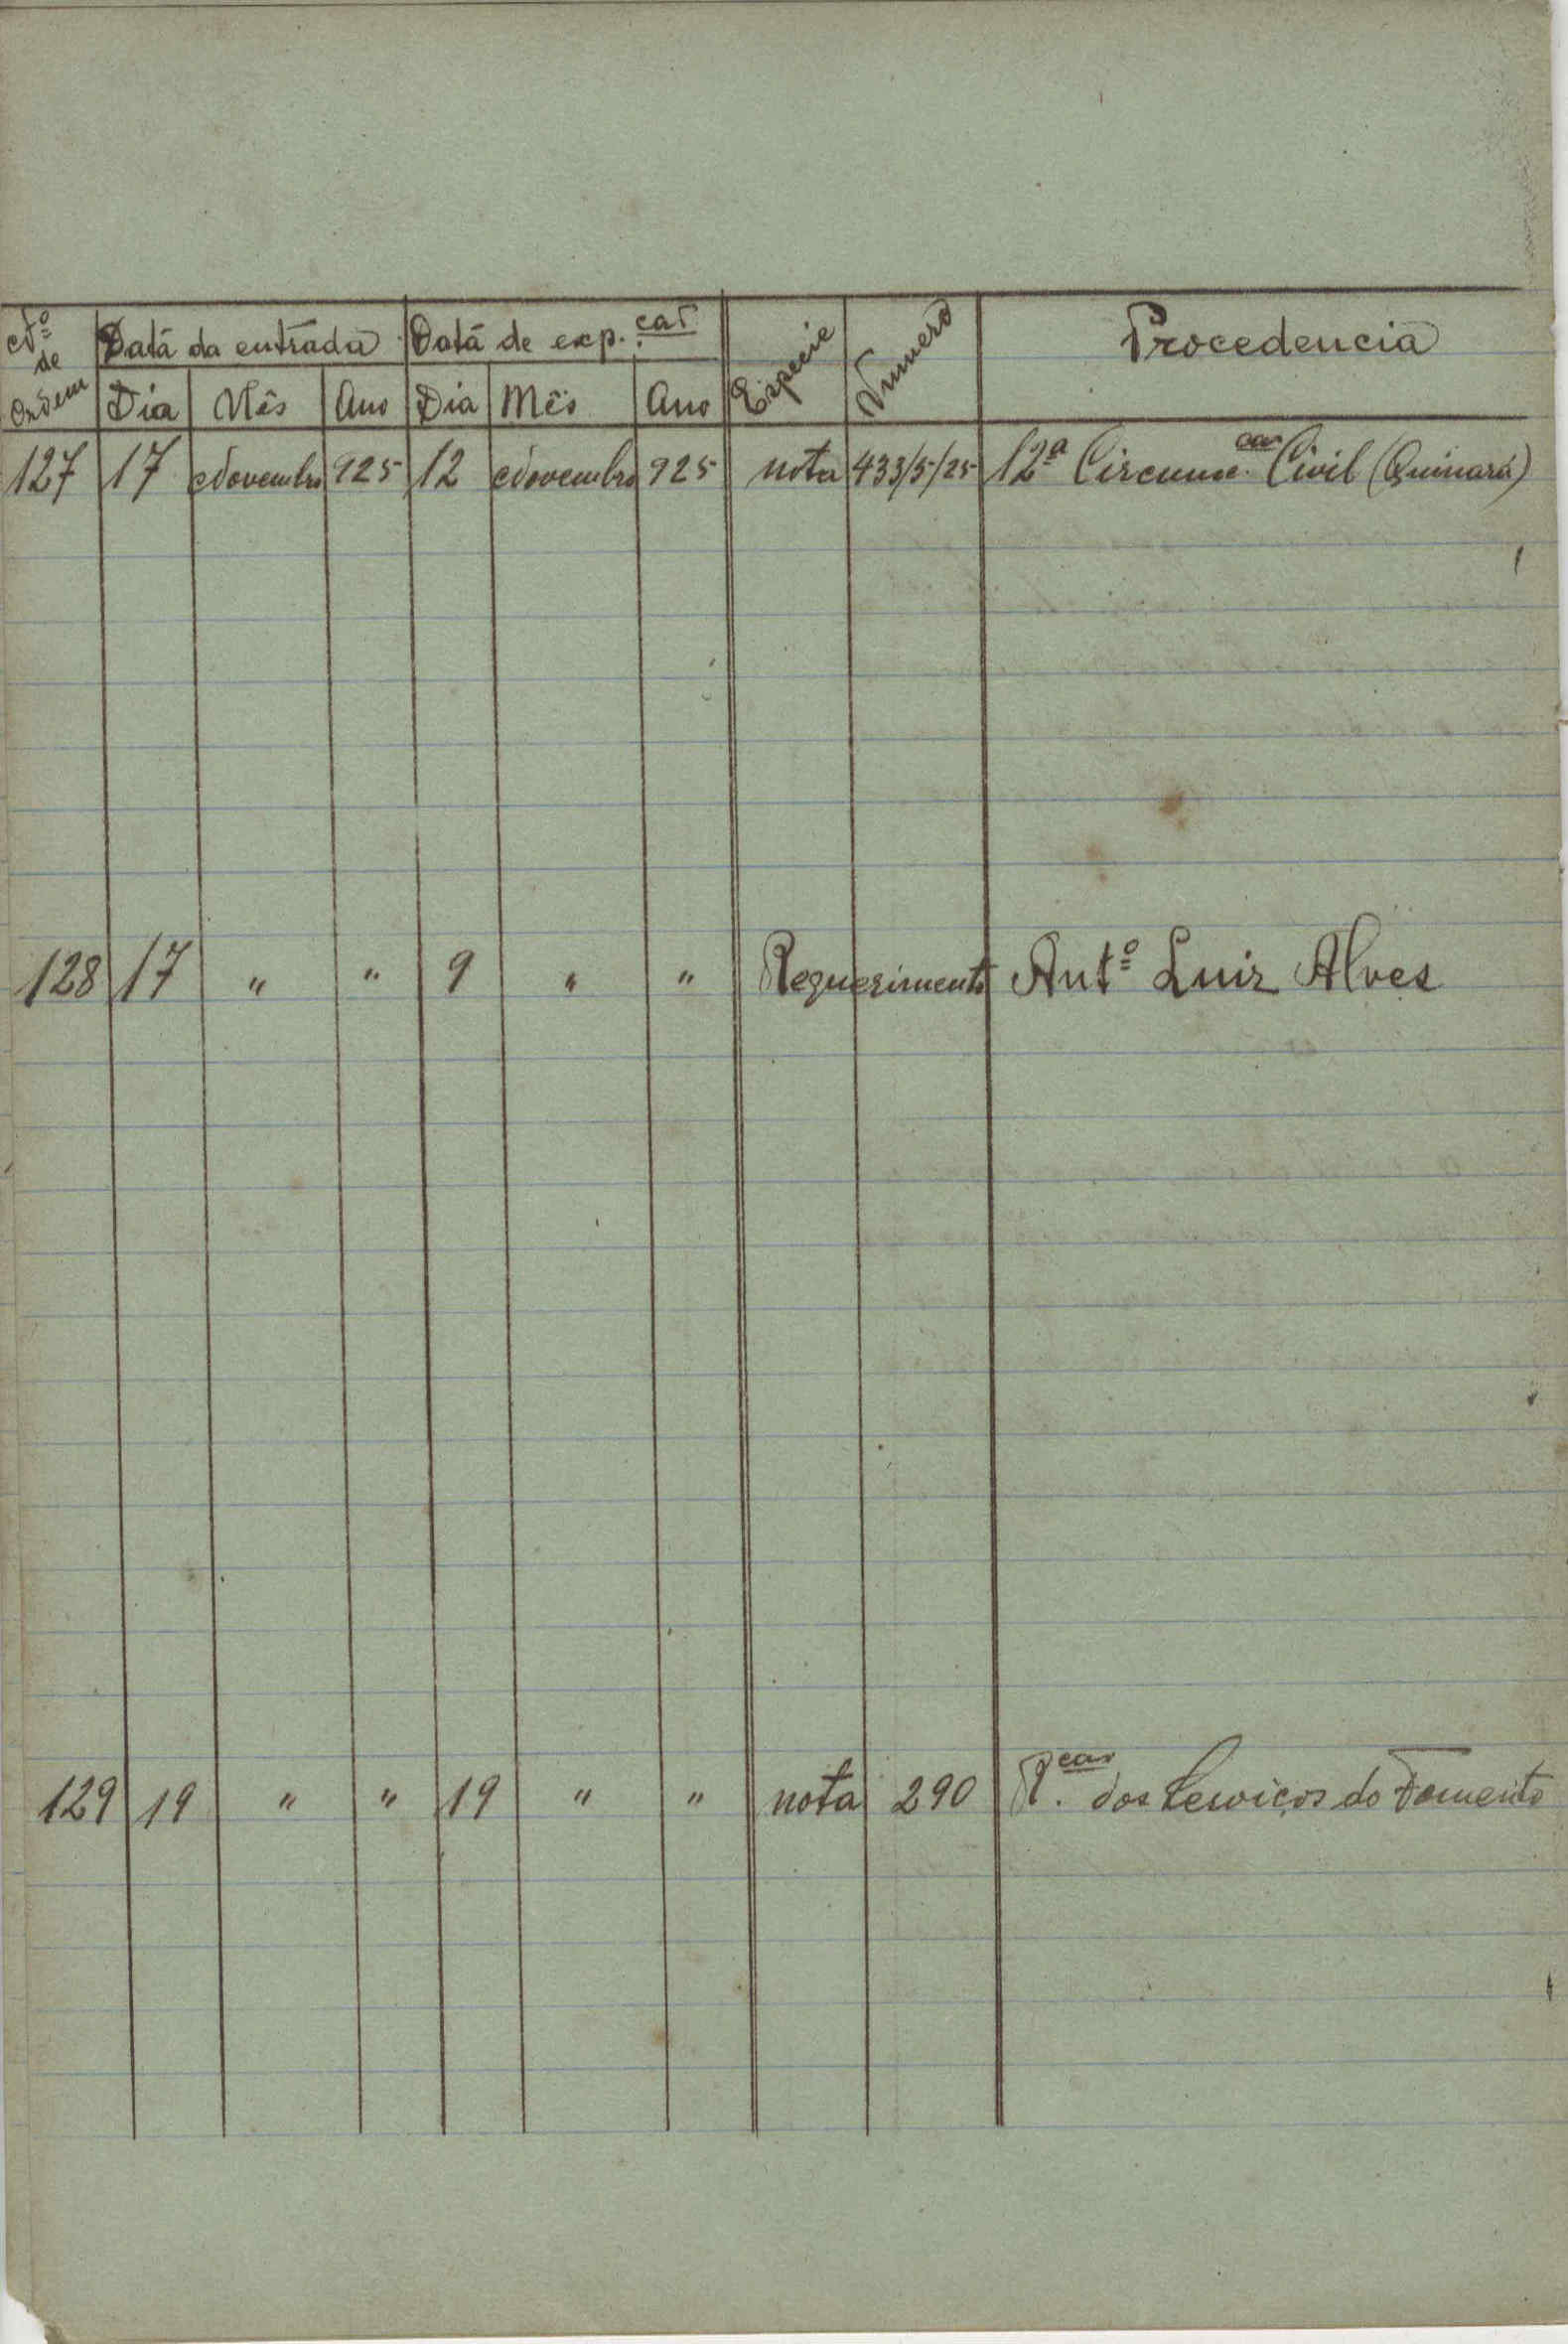 Nº de Ordem | Data da entrada | Data de exp.ção | Especie | Numero | Procedencia
Dia | Mês | Ano | Dia | Mês | Ano
127 | 17 | Novembro | 925 | 12 | Novembro | 925 | nota | 433/5/25 | 12ª Circunsc.ção Civil (Quinará)
128 | 17 | " | " | 9 | " | " | Requerimento | Antº Luiz Alves
129 | 19 | " | " | 19 | " | " | nota | 290 | R.ção dos Serviços do Fomento